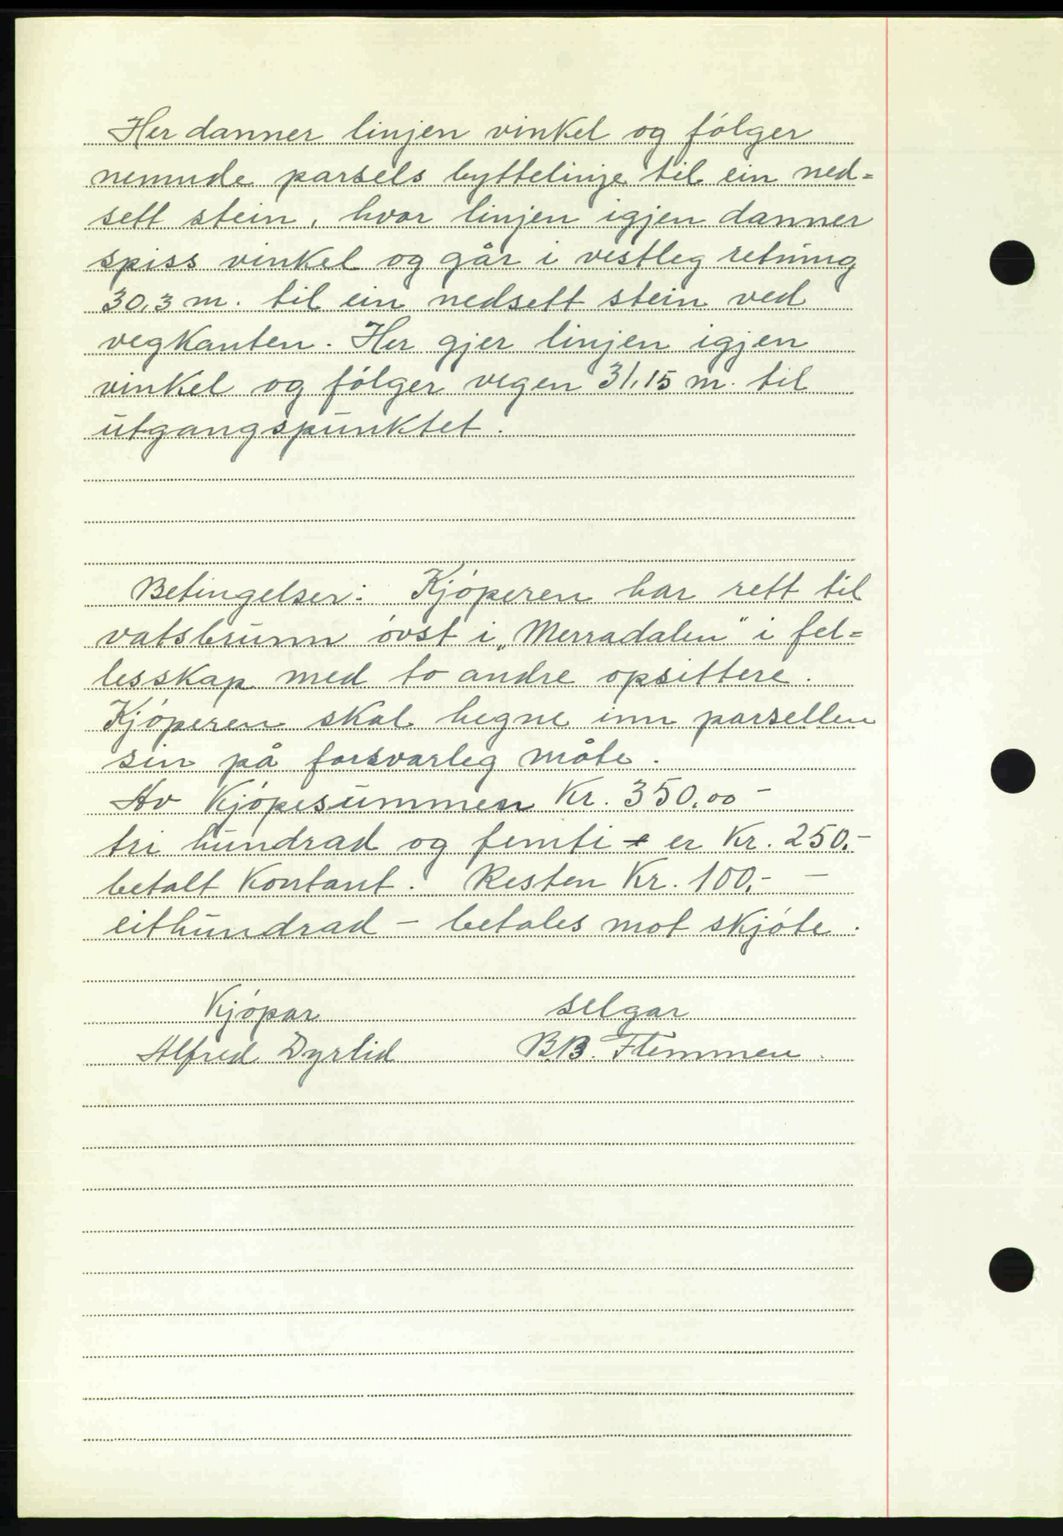 Her danner linjen vinkel og følger
nemnde parsels byttelinje til ein ned=
sett stein, hvor linjen igjen danner
spiss vinkel og går i vestleg retning
30,3 m. til ein nedsett stein ved
vegkanten. Her gjer linjen igjen
vinkel og følger vegen 31,15 m. til
utgangspunktet.
Betingelser: Kjøperen har rett til
vatsbrunn øvst i „Merradalen" i fel=
lesskap med to andre opsittere.
Kjøperen skal hegne inn parsellen
sin på forsvarleg måte.
Av Kjøpesummen Kr. 350,00 -
tri hundrad og femti - er Kr. 250,-
betalt Kontant. Resten Kr. 100,- -
eithundrad - betales mot skjøte.
Kjøpar selgar
Alfred Dyrlid B.B. Flemmen.